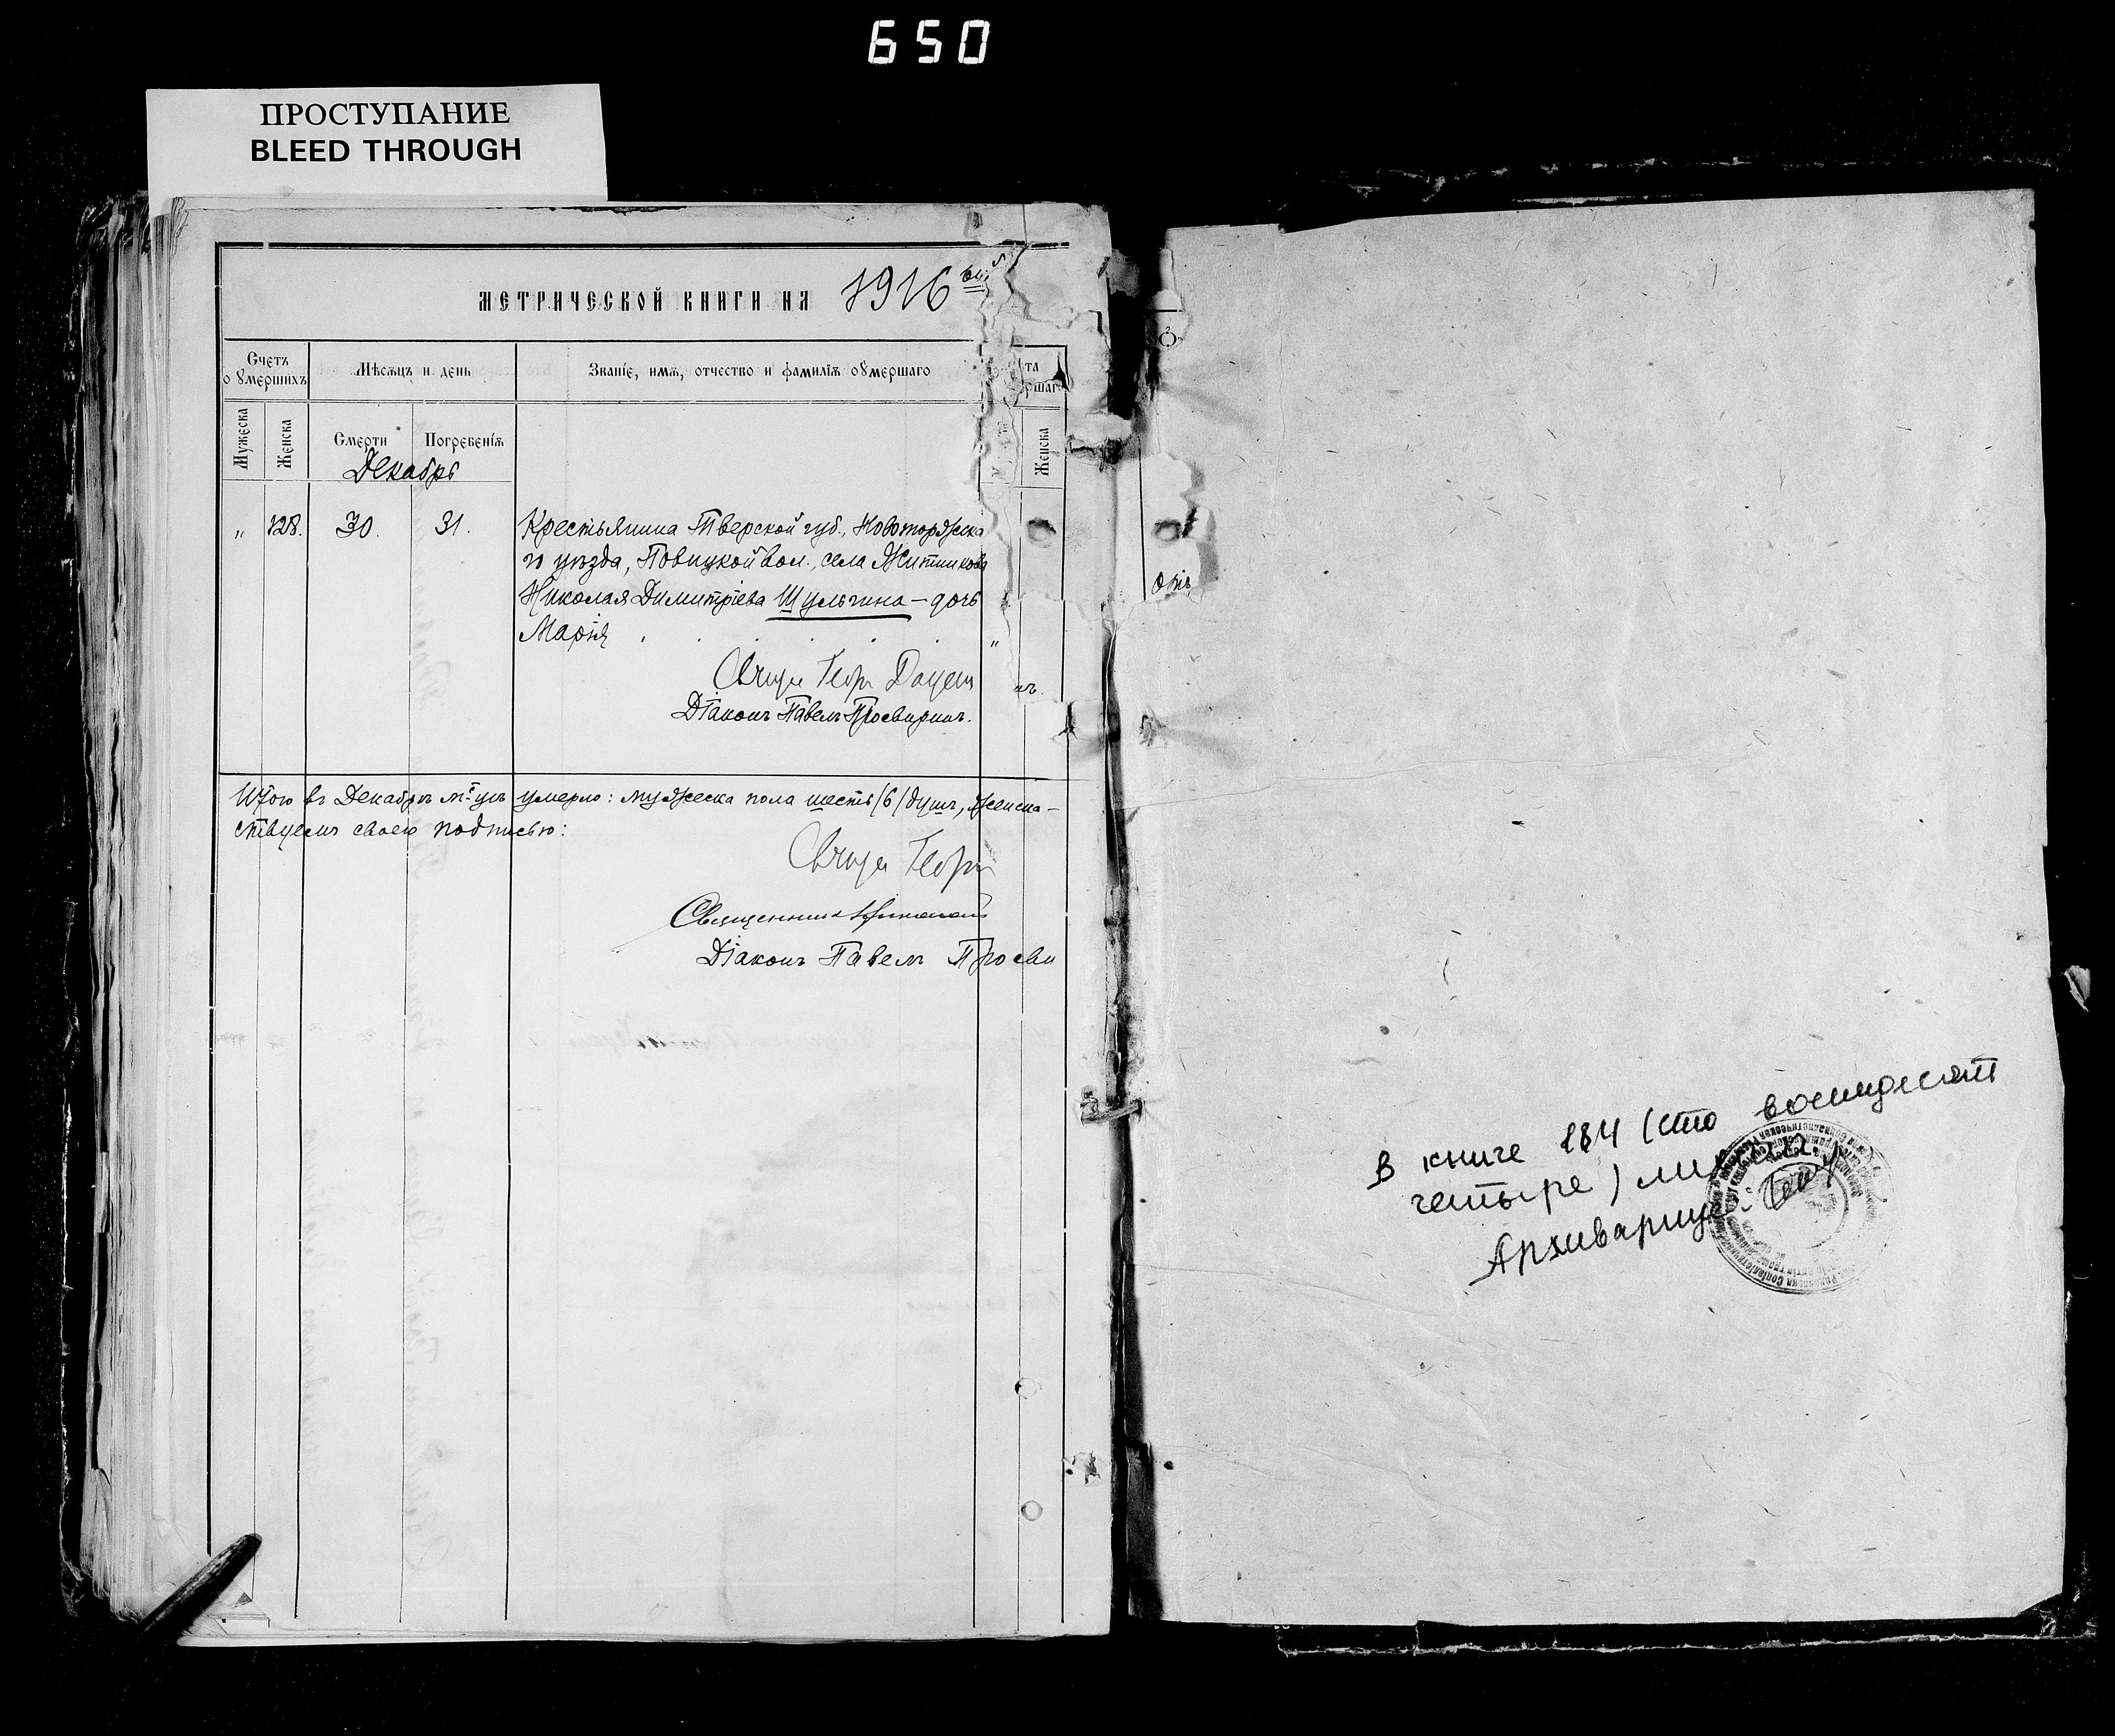 650
ПРОСТУПАНИЕ
BLEED THROUGH
МЕТРИЧЕСКОЙ КНИГИ НА 1916
Счетъ оумершихъ
Мѣсяцъ и день
Званіе, имя, отчество и фамилія оумершаго
Мужеска
Женска
Смерти
Погребенія
Женска
Декабрь
" 128. 30. 31. Крестьянина Тверской губ., Новоторжска
го уѣзда, Повицкой вол., села Житникова
Николая Димитріева Шульгина – дочь
Марія "
Георг
Діаконъ Павелъ Просвирнинъ.
Итого въ Декабрѣ м-цѣ умерло: мужеска пола шесть /6/ душъ, женска –
ствуемъ своею подписью:
Георг
Священникъ
Діаконъ Павелъ Просви
В книге 184 (сто восемдесят
четыре) листа
Архивариус: